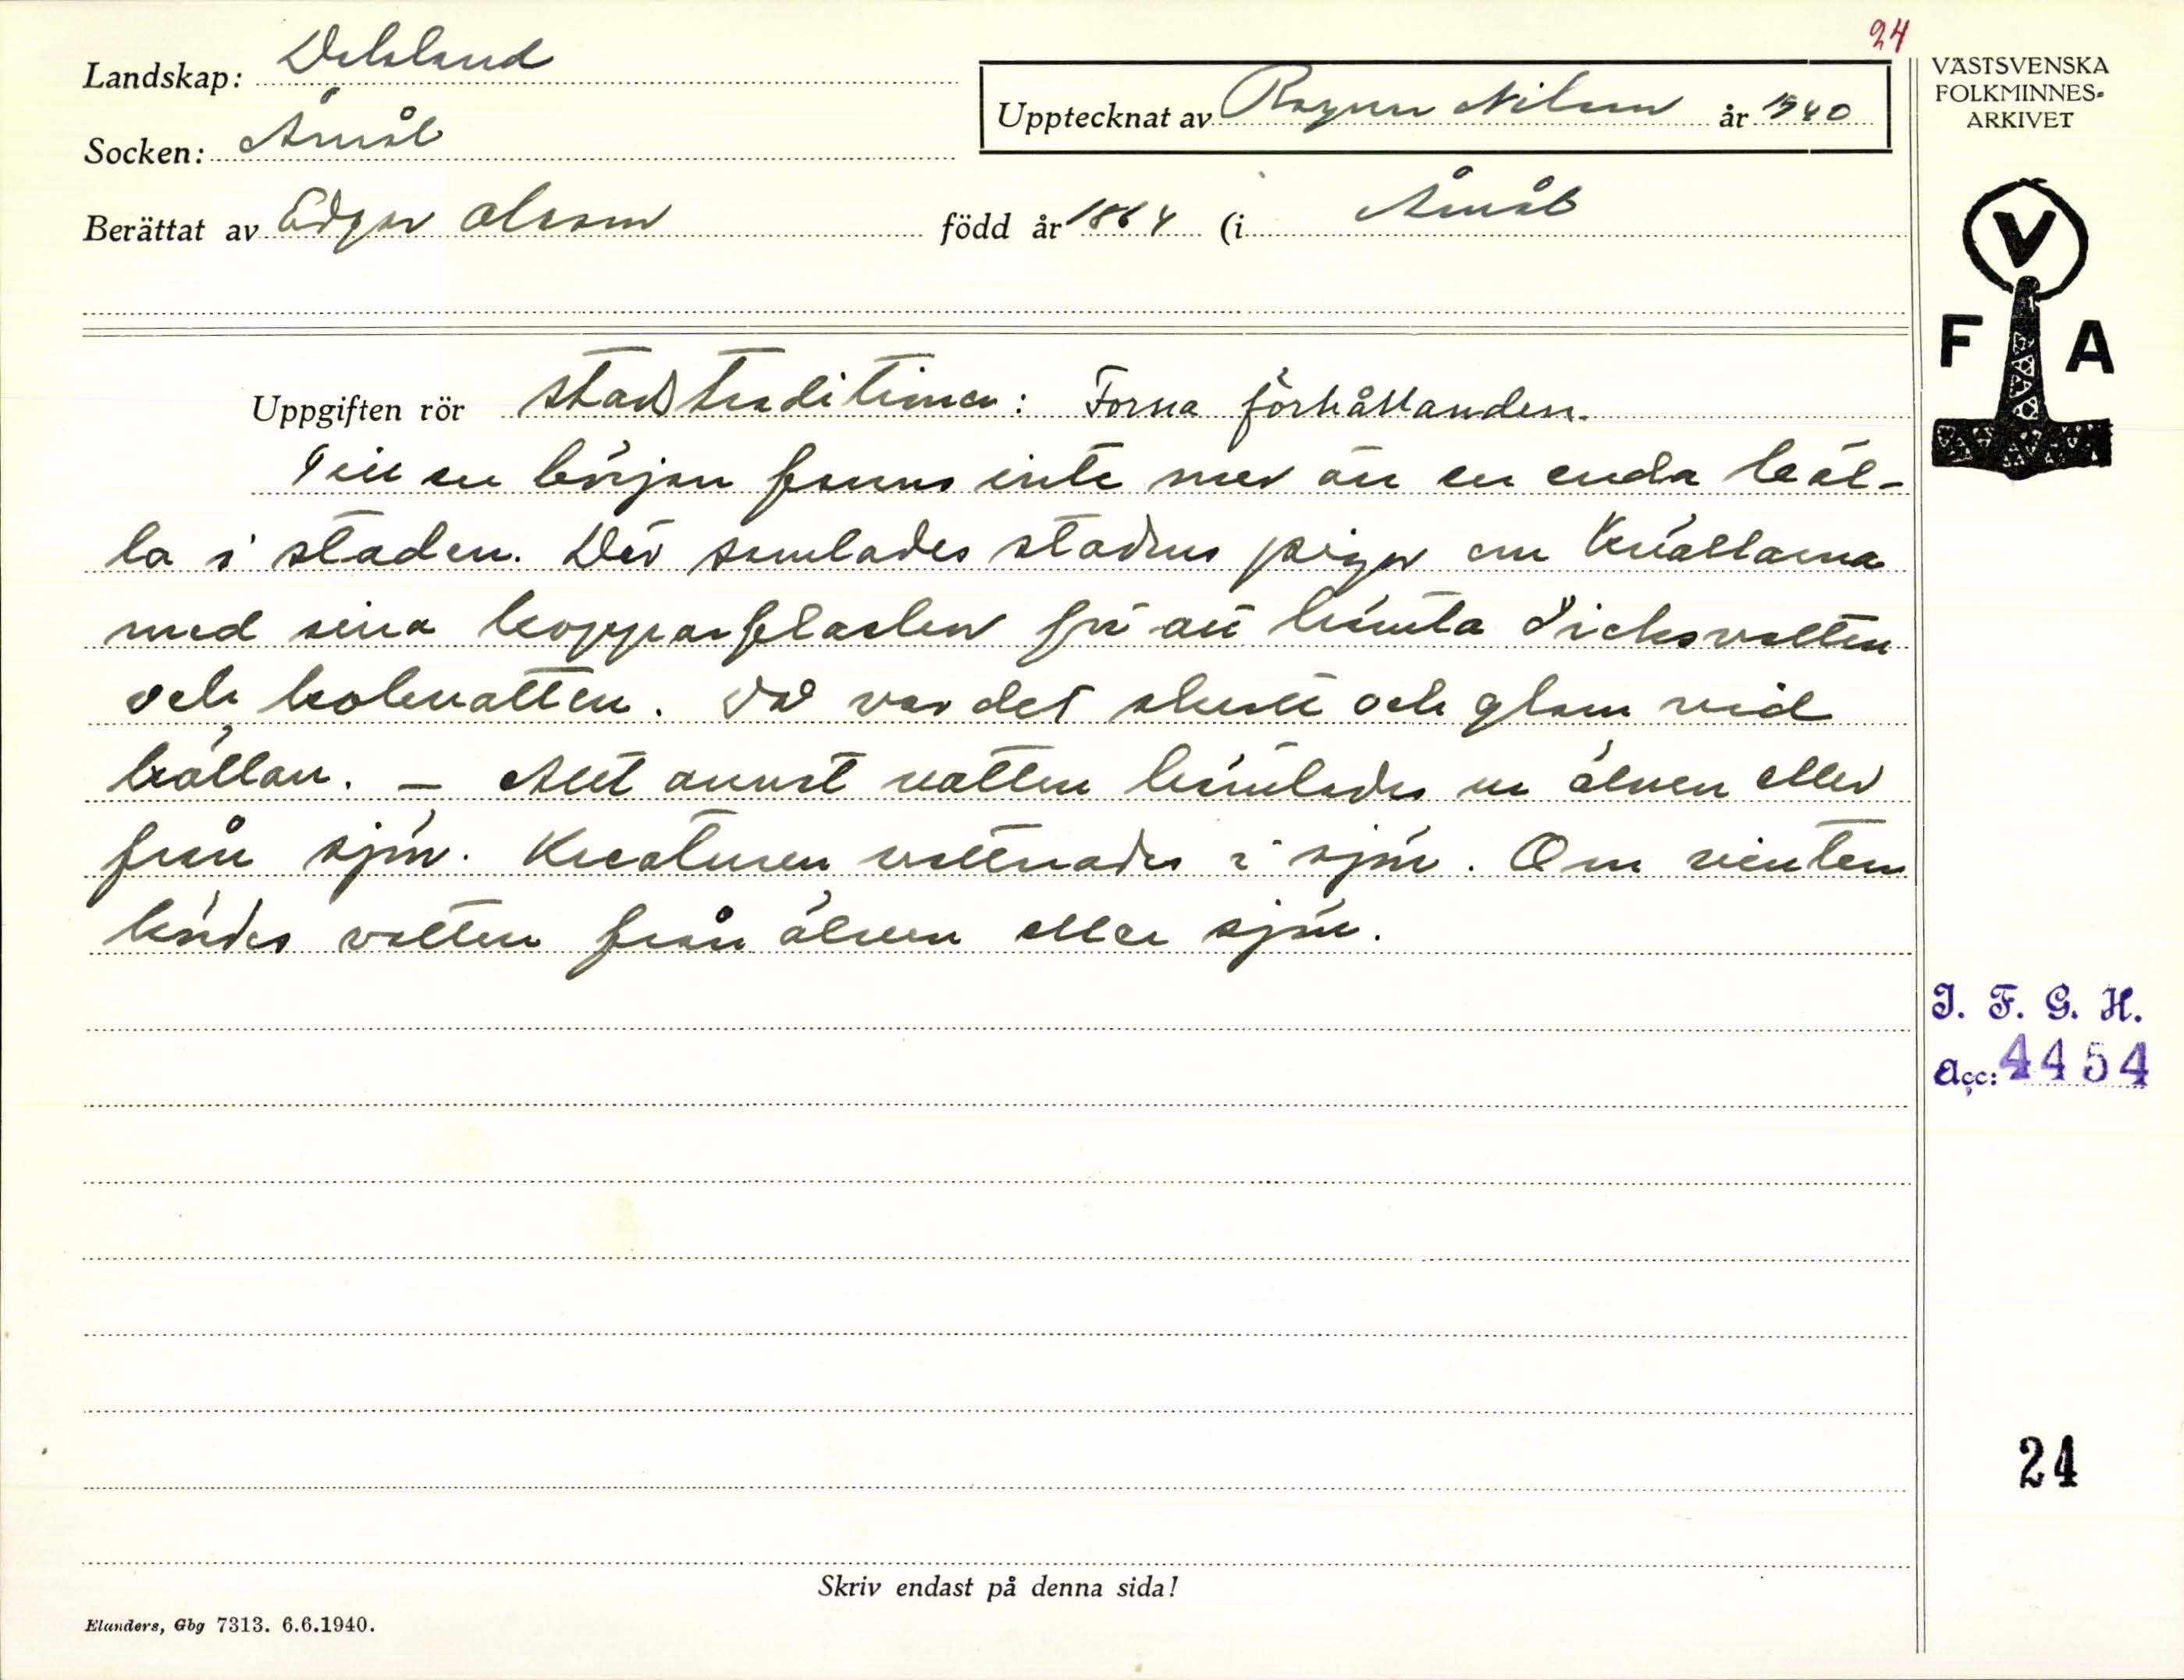 24
Landskap: Dalsland
Socken: Åmål
Upptecknat av Ragnar Nilsson år 1940
VÄSTSVENSKA
FOLKMINNES-
ARKIVET
Berättat av Edgar Olsson född år 1864 (i Åmål
V
F A
Uppgiften rör Stadstraditioner: Forna förhållanden.
Till en början fanns inte mer än en enda käl-
la i staden. Där samlades stadens pigor om kvällarna
med sina kopparflaskor för att hämta dricksvatten
och kokvatten. Då var det skratt och glam vid
källan. – Allt annat vatten hämtades ur älven eller
från sjön. Kreaturen vattnades i sjön. Om vintern
kördes vatten från älven eller sjön.
I. F. G. H.
Acc: 4454
24
Skriv endast på denna sida!
Elanders, Gbg 7313. 6.6.1940.